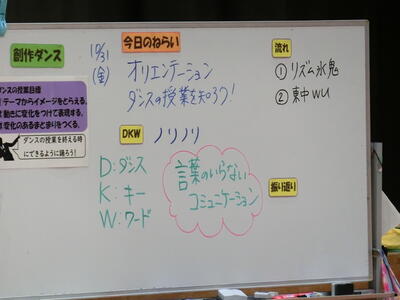 創作ダンス
10/31
(金)
今日のねらい
オリエンテーション
ダンスの授業を知ろう!
流れ
① リズム氷鬼
② 東中WU
ダンスの授業目標
テーマからイメージをとらえる。
動きに変化をつけて表現する。
変化のあるまとまりをつくる。
ダンスの授業を終える時
にできるように踊ろう!
DKW
ノリノリ
D:ダンス
K:キー
W:ワード
言葉のいらない
コミュニケーション
振り返り